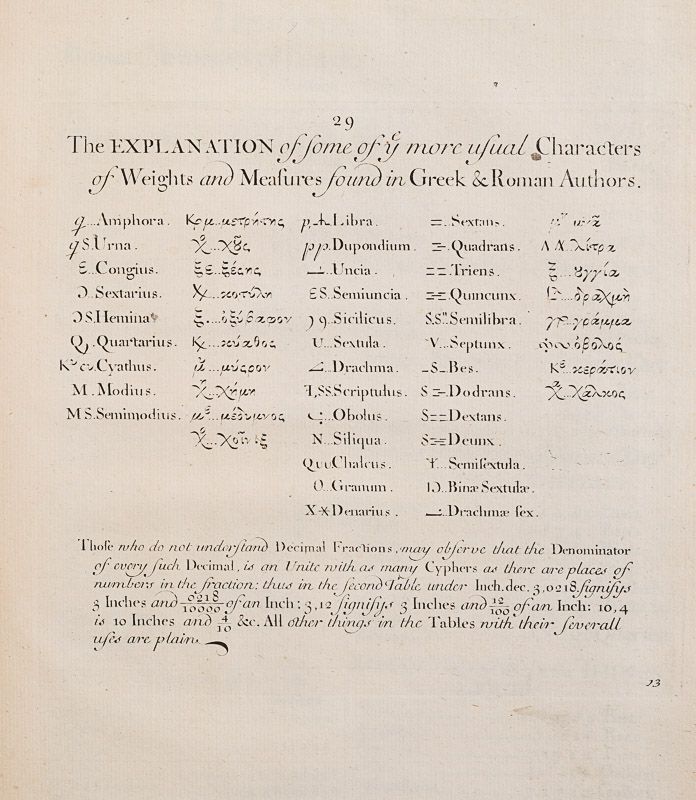 29
The EXPLANATION of ſome of yͤ more uſual Characters
of Weights and Meaſures found in Greek & Roman Authors.
Amphora. μετρητης Libra. Sextans.
S. Urna. χȣς Dupondium. Quadrans. λίτρα
Congius. ξέςης Uncia. Triens. ουγγία
Ɔ...Sextarius. κοτύλη ƐS. Semiuncia. Quincunx. δραχμὴ
ƆS. Hemina οξύβαφον Sicilicus. S.S''. Semilibra. γρ..γράμμα
Quartarius. κύαθος U...Sextula. V...Septunx. οβολός
Cyathus. μύςρον Drachma. S...Bes. κεράτιον
M...Modius. χήμη SS. Scriptulus. S=-Dodrans. χάλκος
M S. Semimodius. μέδιμνος Obolus. S==Dextans.
χοῖνιξ N...Siliqua. Deunx.
Chalcus. Semiſextula.
Granum. Binæ Sextulæ.
Denarius. Drachmæ ſex.
Thoſe who do not underſtand Decimal Fractions, may obſerve that the Denominator
of every ſuch Decimal, is an Unite with as many Cyphers as there are places of
numbers in the fraction: thus in the ſecond Table under Inch. dec. 3,0218 ſignifys
3 Inches and 0218/10000 of an Inch: 3,12 ſignifys 3 Inches and 12/100 of an Inch: 10,4
is 10 Inches and 4/10 &c. All other things in the Tables with their ſeverall
uſes are plain.
13